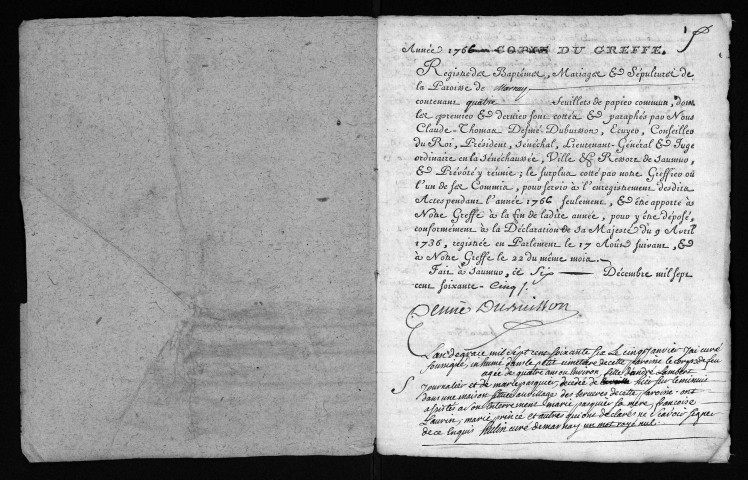 Année 1766 COPIE DU GREFFE.
Registre des Baptêmes, Mariages & Sépultures de
la Paroisse de Marnay
contenant quatre feuillets de papier commun, dont
les premier & dernier sont cottés & paraphés par Nous
Claude-Thomas Desmé-Dubuisson, Ecuyer, Conseiller
du Roi, Président, Sénéchal, Lieutenant-Général & Juge
ordinaire en la Sénéchaussée, Ville & Ressort de Saumur,
& Prévôté y réunie ; le surplus cotté par notre Greffier ou
l'un de ses Commis, pour servir à l'enregistrement desdits
Actes pendant l'année 1766 seulement, & être apporté à
Notre Greffe à la fin de ladite année, pour y être déposé,
conformément à la Déclaration de Sa Majesté du 9 Avril
1736, registrée en Parlement le 17 Août suivant, &
à Notre Greffe le 22 du même mois.
Fait à Saumur, le Six Décembre mil sept
cent soixante-Cinq.
Desmé Dubuisson
L'an de grace mil sept cent soixante six le cinq janvier j'ai curé
soussigné inhumé dans le petit cimetiere de cette paroisse le corps de feu
agée de quatre ans ou environ fille d'andré Lambert
journalier et de marie pasquier, decédé de hier sur le minuit
dans une maison située au village des de cette paroisse ont
assistés a son enterrement marie pasquier sa mère, françoise
Laurin, marie prince et autres qui ont declaré ne sçavoir signer
de ce enquis curé de marnay un mot rayé nul.